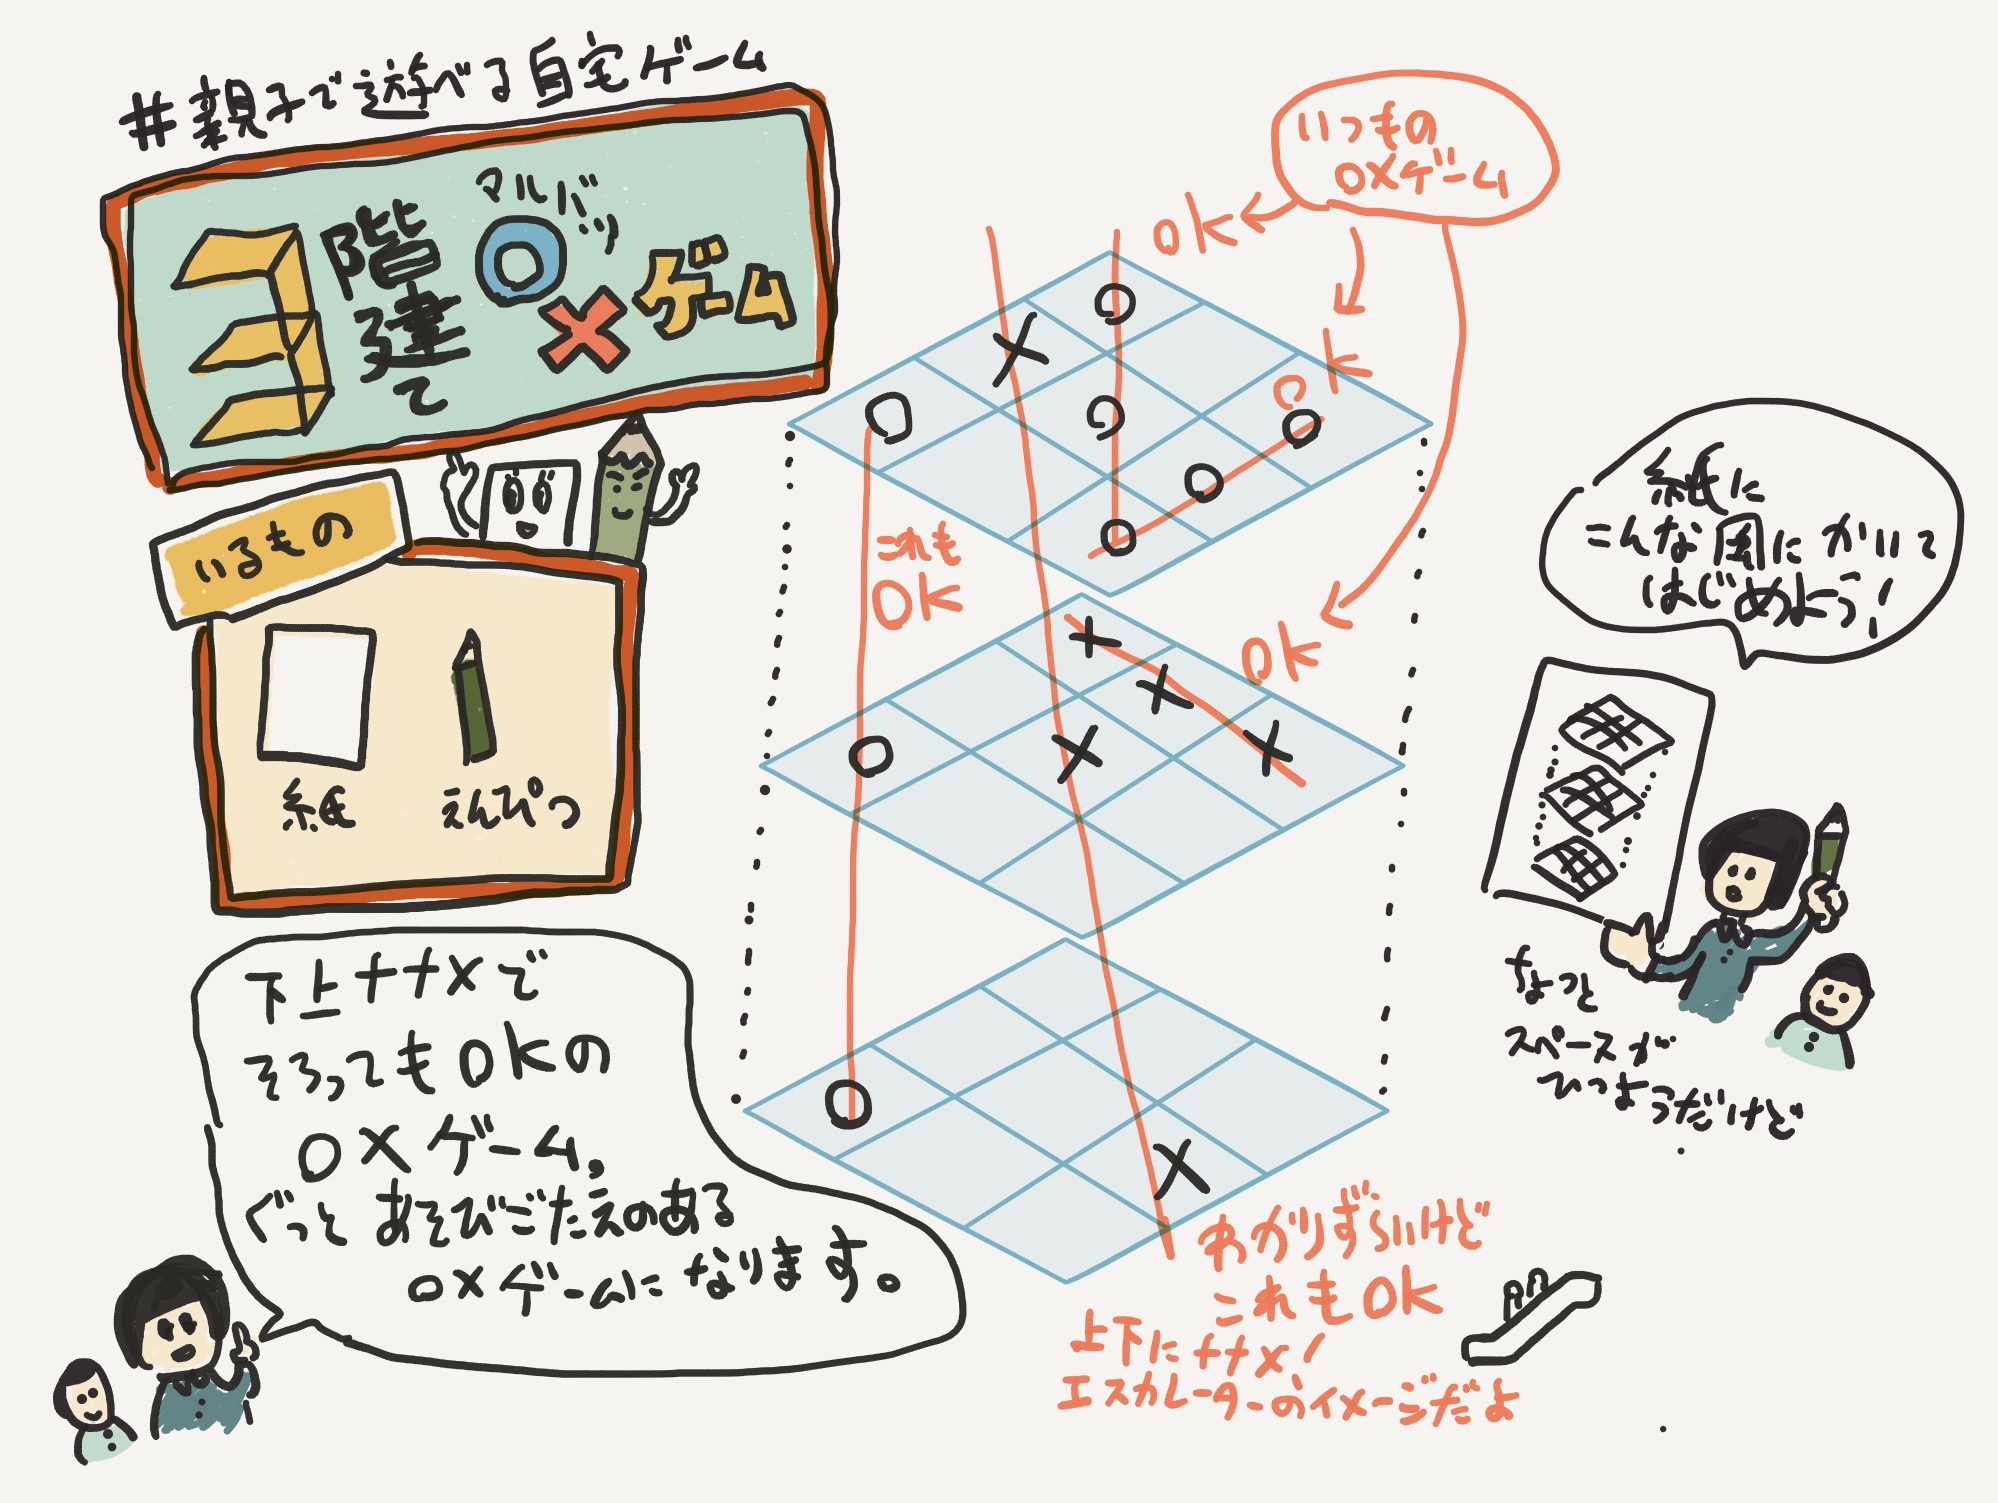 #親子で遊べる自宅ゲーム
3階建て
マルバツ
○×ゲーム
いるもの
紙
えんぴつ
下上ナナメで
そろってもOKの
○×ゲーム。
ぐっとあそびごたえのある
○×ゲームになります。
いつもの
○×ゲーム
OK
OK
OK
これも
OK
わかりずらいけど
これもOK
上下にナナメ!
エスカレーターのイメージだよ
紙に
こんな風にかいて
はじめよう!
ちょっと
スペースが
ひつようだけど